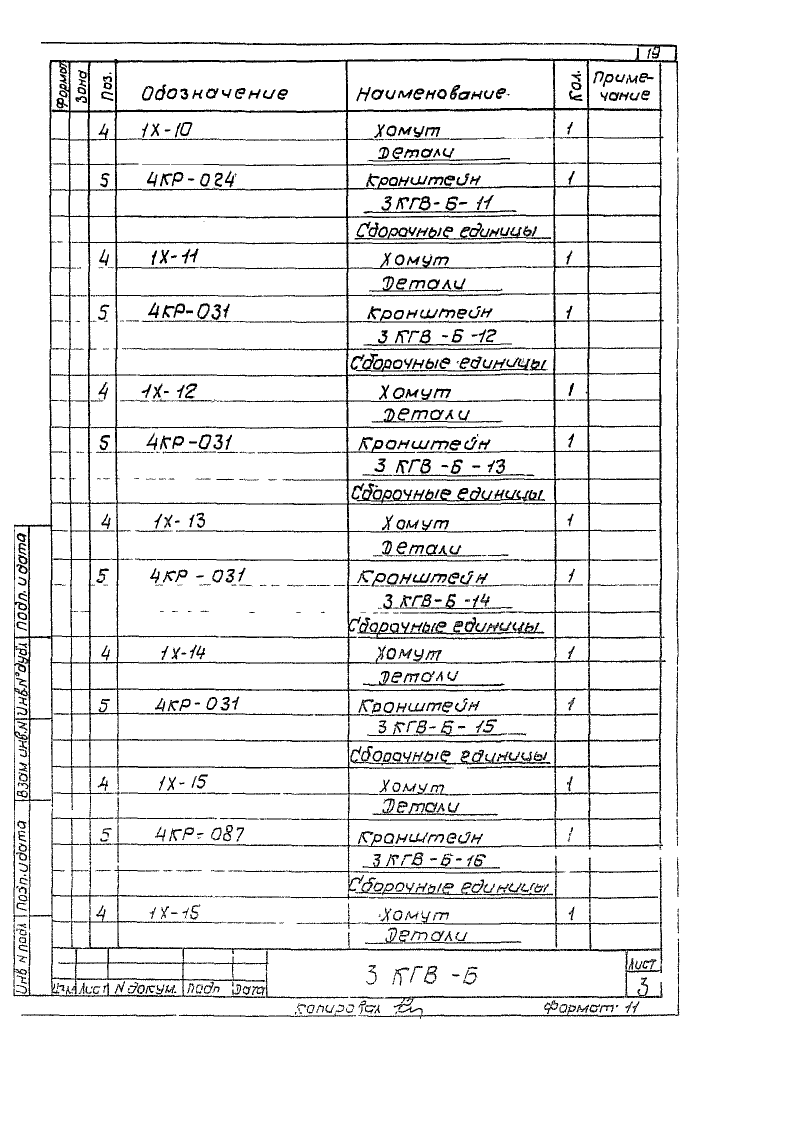 19
Формат Зона Поз. Обозначение Наименование Кол. Приме-
чание
4 1Х-10 Хомут 1
Детали
5 4КР-024 Кронштейн 1
3 КГВ-Б-11
Сборочные единицы
4 1Х-11 Хомут 1
Детали
5 4КР-031 Кронштейн 1
3 КГВ-Б-12
Сборочные единицы
4 1Х-12 Хомут 1
Детали
5 4КР-031 Кронштейн 1
3 КГВ-Б-13
Сборочные единицы
4 1Х-13 Хомут 1
Детали
5 4КР-031 Кронштейн 1
3 КГВ-Б-14
Сборочные единицы
4 1Х-14 Хомут 1
Детали
5 4КР-031 Кронштейн 1
3 КГВ-Б-15
Сборочные единицы
4 1Х-15 Хомут 1
Детали
5 4КР-087 Кронштейн 1
3 КГВ-Б-16
Сборочные единицы
4 1Х-15 Хомут 1
Детали
Подп. и дата
Инв.N°дубл.
Взам инв.N
Подп. и дата
Инв N подл
Изм Лист N докум. Подп Дата
3 КГВ-Б
Лист
3
Копировал
Формат 11